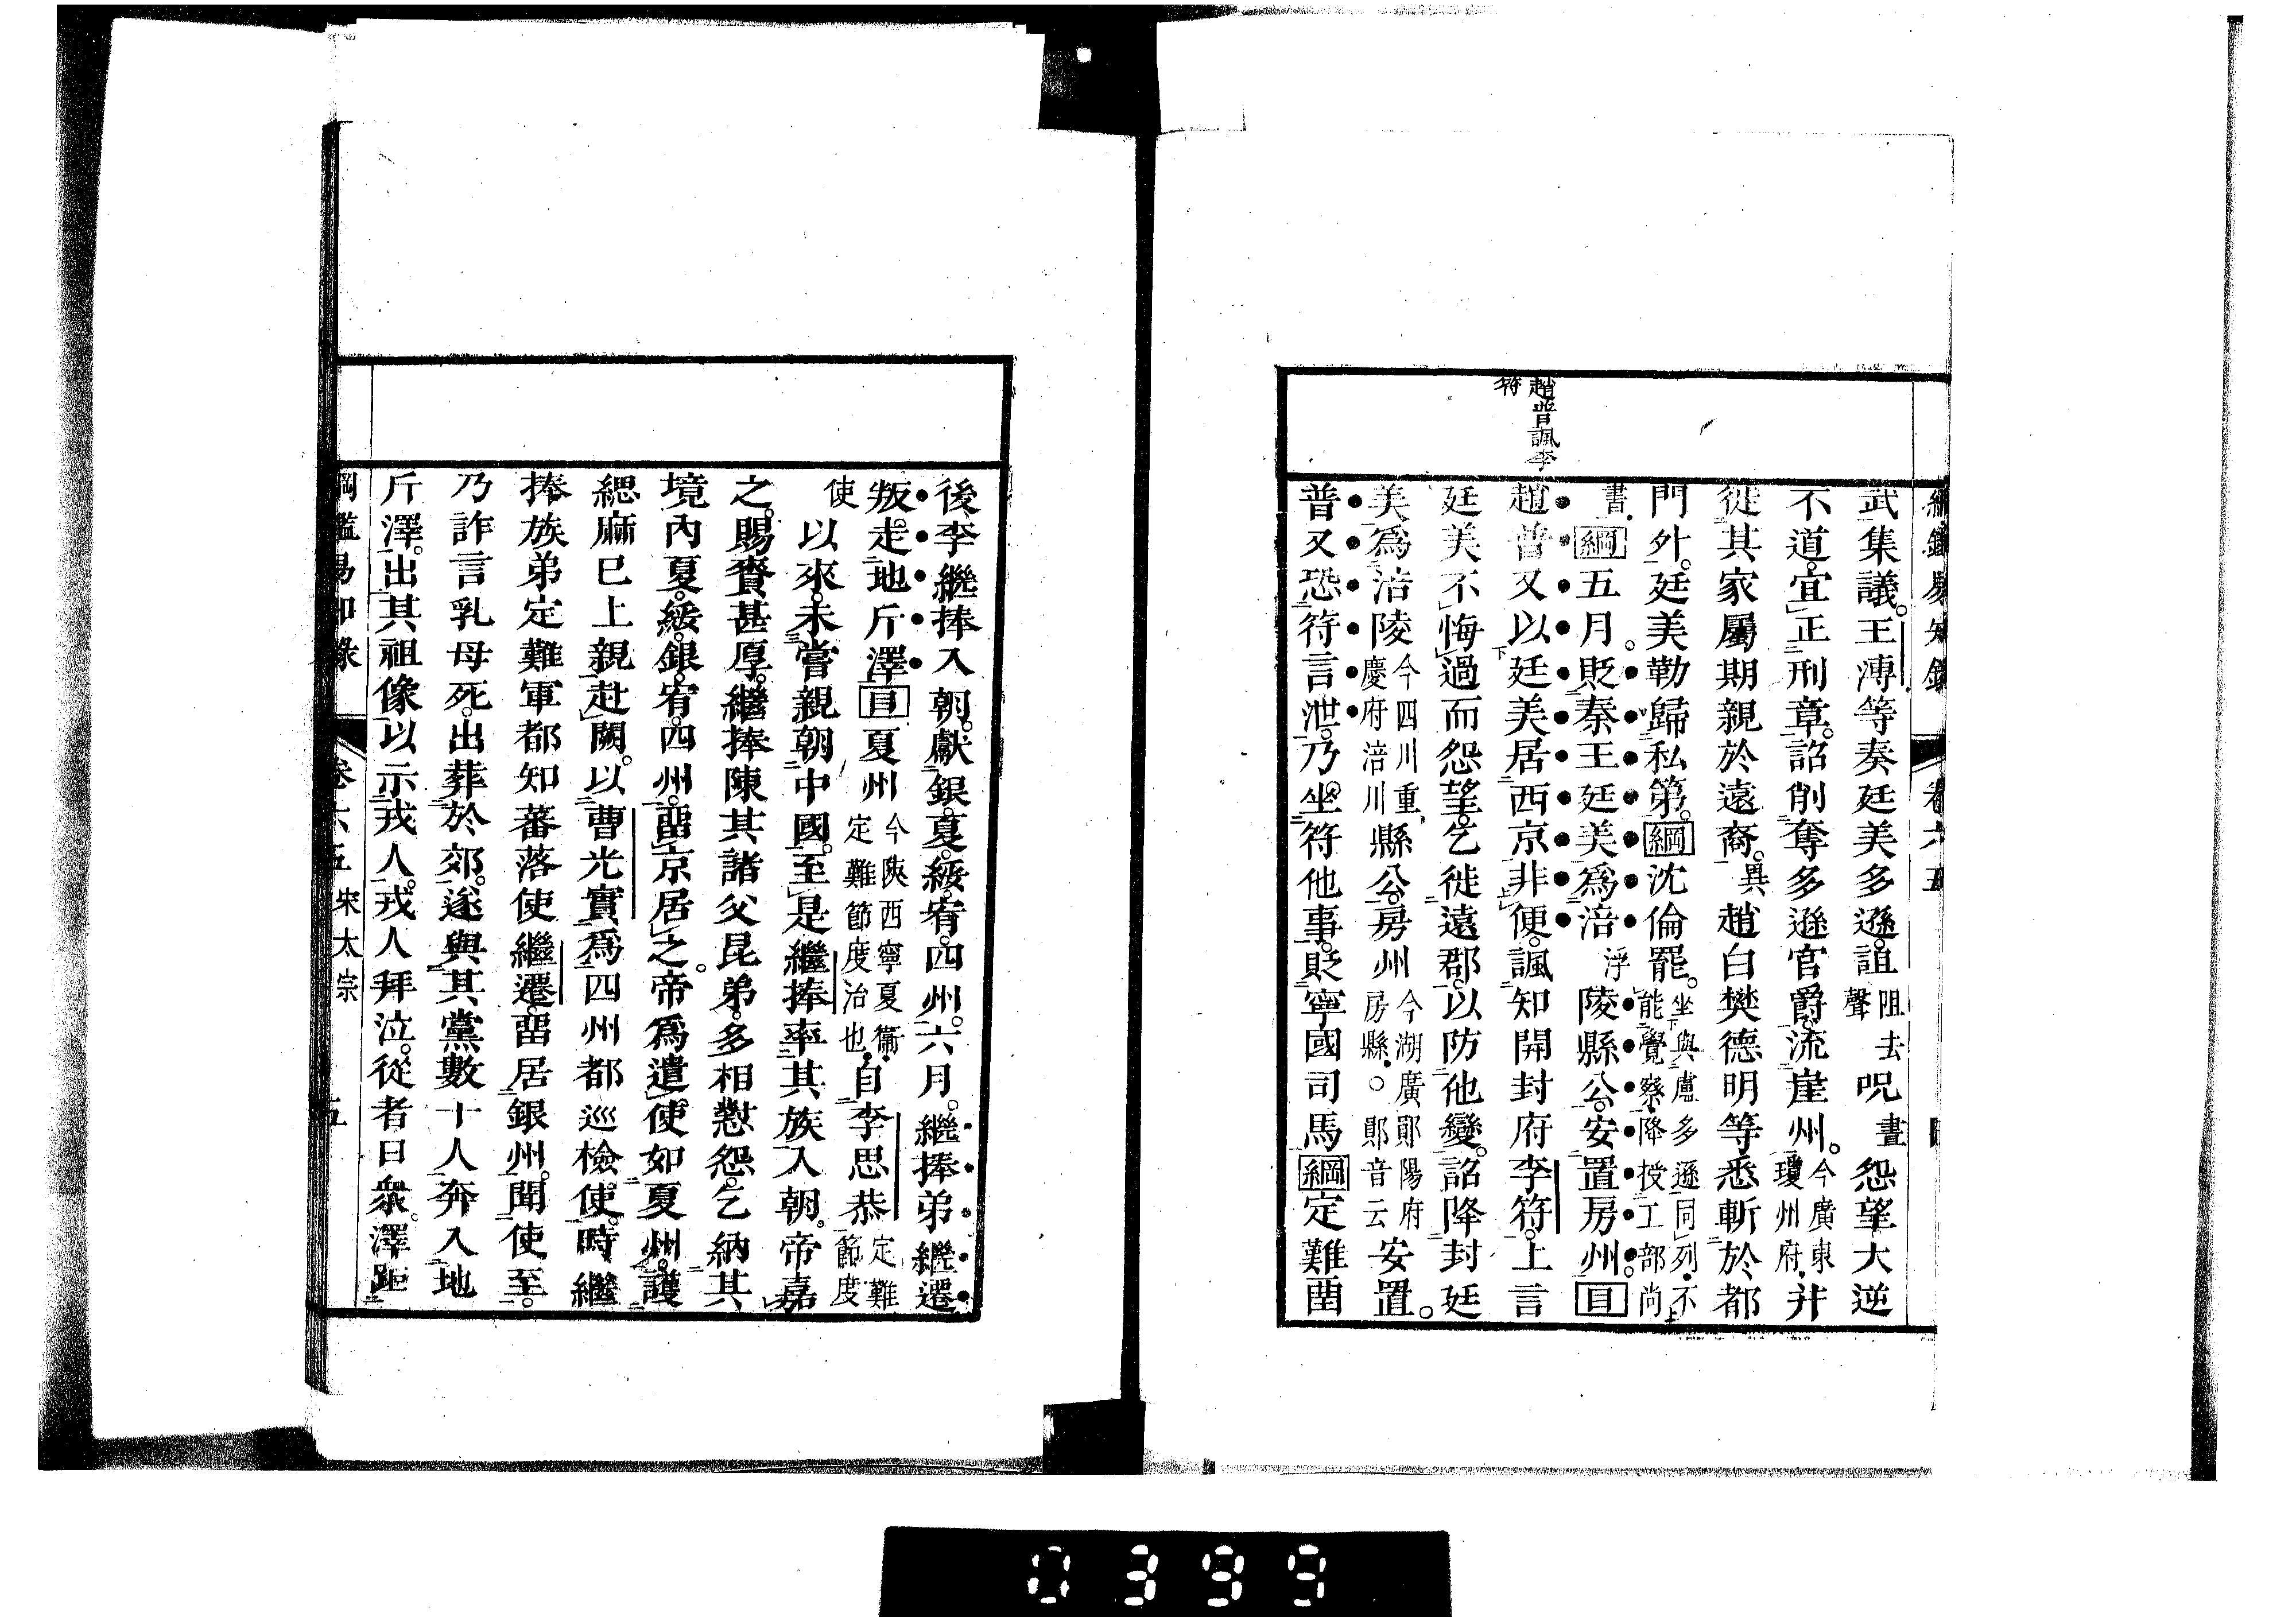 綱鑑易知錄 卷六五
趙普諷李
符
武集議。王溥等奏廷美多遜詛阻去聲呪晝怨望大逆
不道。宜正刑章。詔削奪多遜官爵。流崖州。今廣東瓊州府幷
徙其家屬期親於遠裔。異趙白樊德明等悉斬於都
門外。廷美勒歸私第。綱沈倫罷。坐與盧多遜同列不能覺察降授工部尚
書綱五月。貶秦王廷美爲涪浮陵縣公。安置房州。目
趙普又以廷美居西京非便。諷知開封府李符。上言
廷美不悔過而怨望。乞徙遠郡。以防他變。詔降封廷
美爲涪陵今四川重慶府涪川縣公。房州今湖廣鄖陽府房縣○鄖音云安置。
普又恐符言泄。乃坐符他事。貶寧國司馬綱定難留
後李繼捧入朝。獻銀。夏。綏。宥。四州。六月。繼捧弟繼遷
叛。走地斤澤目夏州今陝西寧夏衞定難節度治也自李思恭定難節度
使以來。未嘗親朝中國。至是繼捧率其族入朝。帝嘉
之。賜賚甚厚。繼捧陳其諸父昆弟。多相懟怨。乞納其
境內夏。綏。銀。宥。四州。留京居之。帝爲遣使如夏州。護
緦麻已上親赴闕。以曹光實爲四州都巡檢使。時繼
捧族弟定難軍都知蕃落使繼遷。留居銀州。聞使至。
乃詐言乳母死。出葬於郊。遂與其黨數十人奔入地
斤澤。出其祖像以示戎人。戎人拜泣。從者日衆。澤距
綱鑑易知錄 卷六五 宋太宗 五
0399